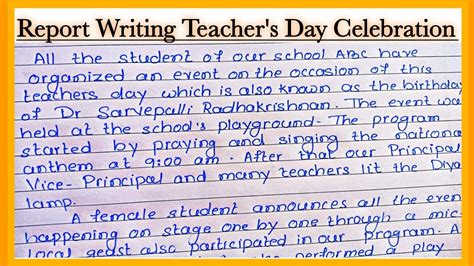 Report Writing Teacher's Day Celebration
All the student of our school ABC have
organized an event on the occasion of this
teachers day which is also known as the birthday
of Dr Sarvepalli Radhakrishnan. The event was
held at the school's playground. The program
started by praying and singing the national
anthem at 9:00 am. After that our Principal
Vice-Principal and many teachers lit the Diya
lamp.
A female student announces all the even
happening on stage one by one through a mic.
local geast also participated in our program. A
performed a play